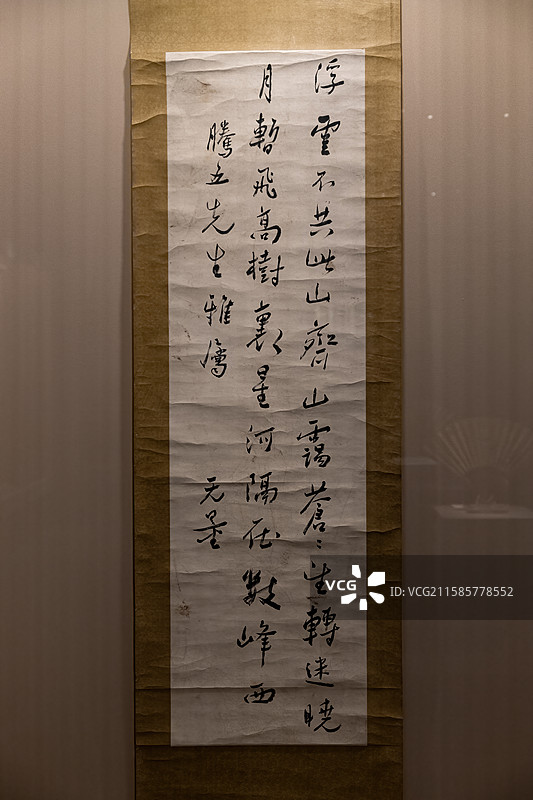 浮雲不共此山齊山靄蒼〻望轉迷曉
月暫飛高樹裏星河隔在數峰西
騰五先生雅屬
无量
VCG
ID:VCG211585778552